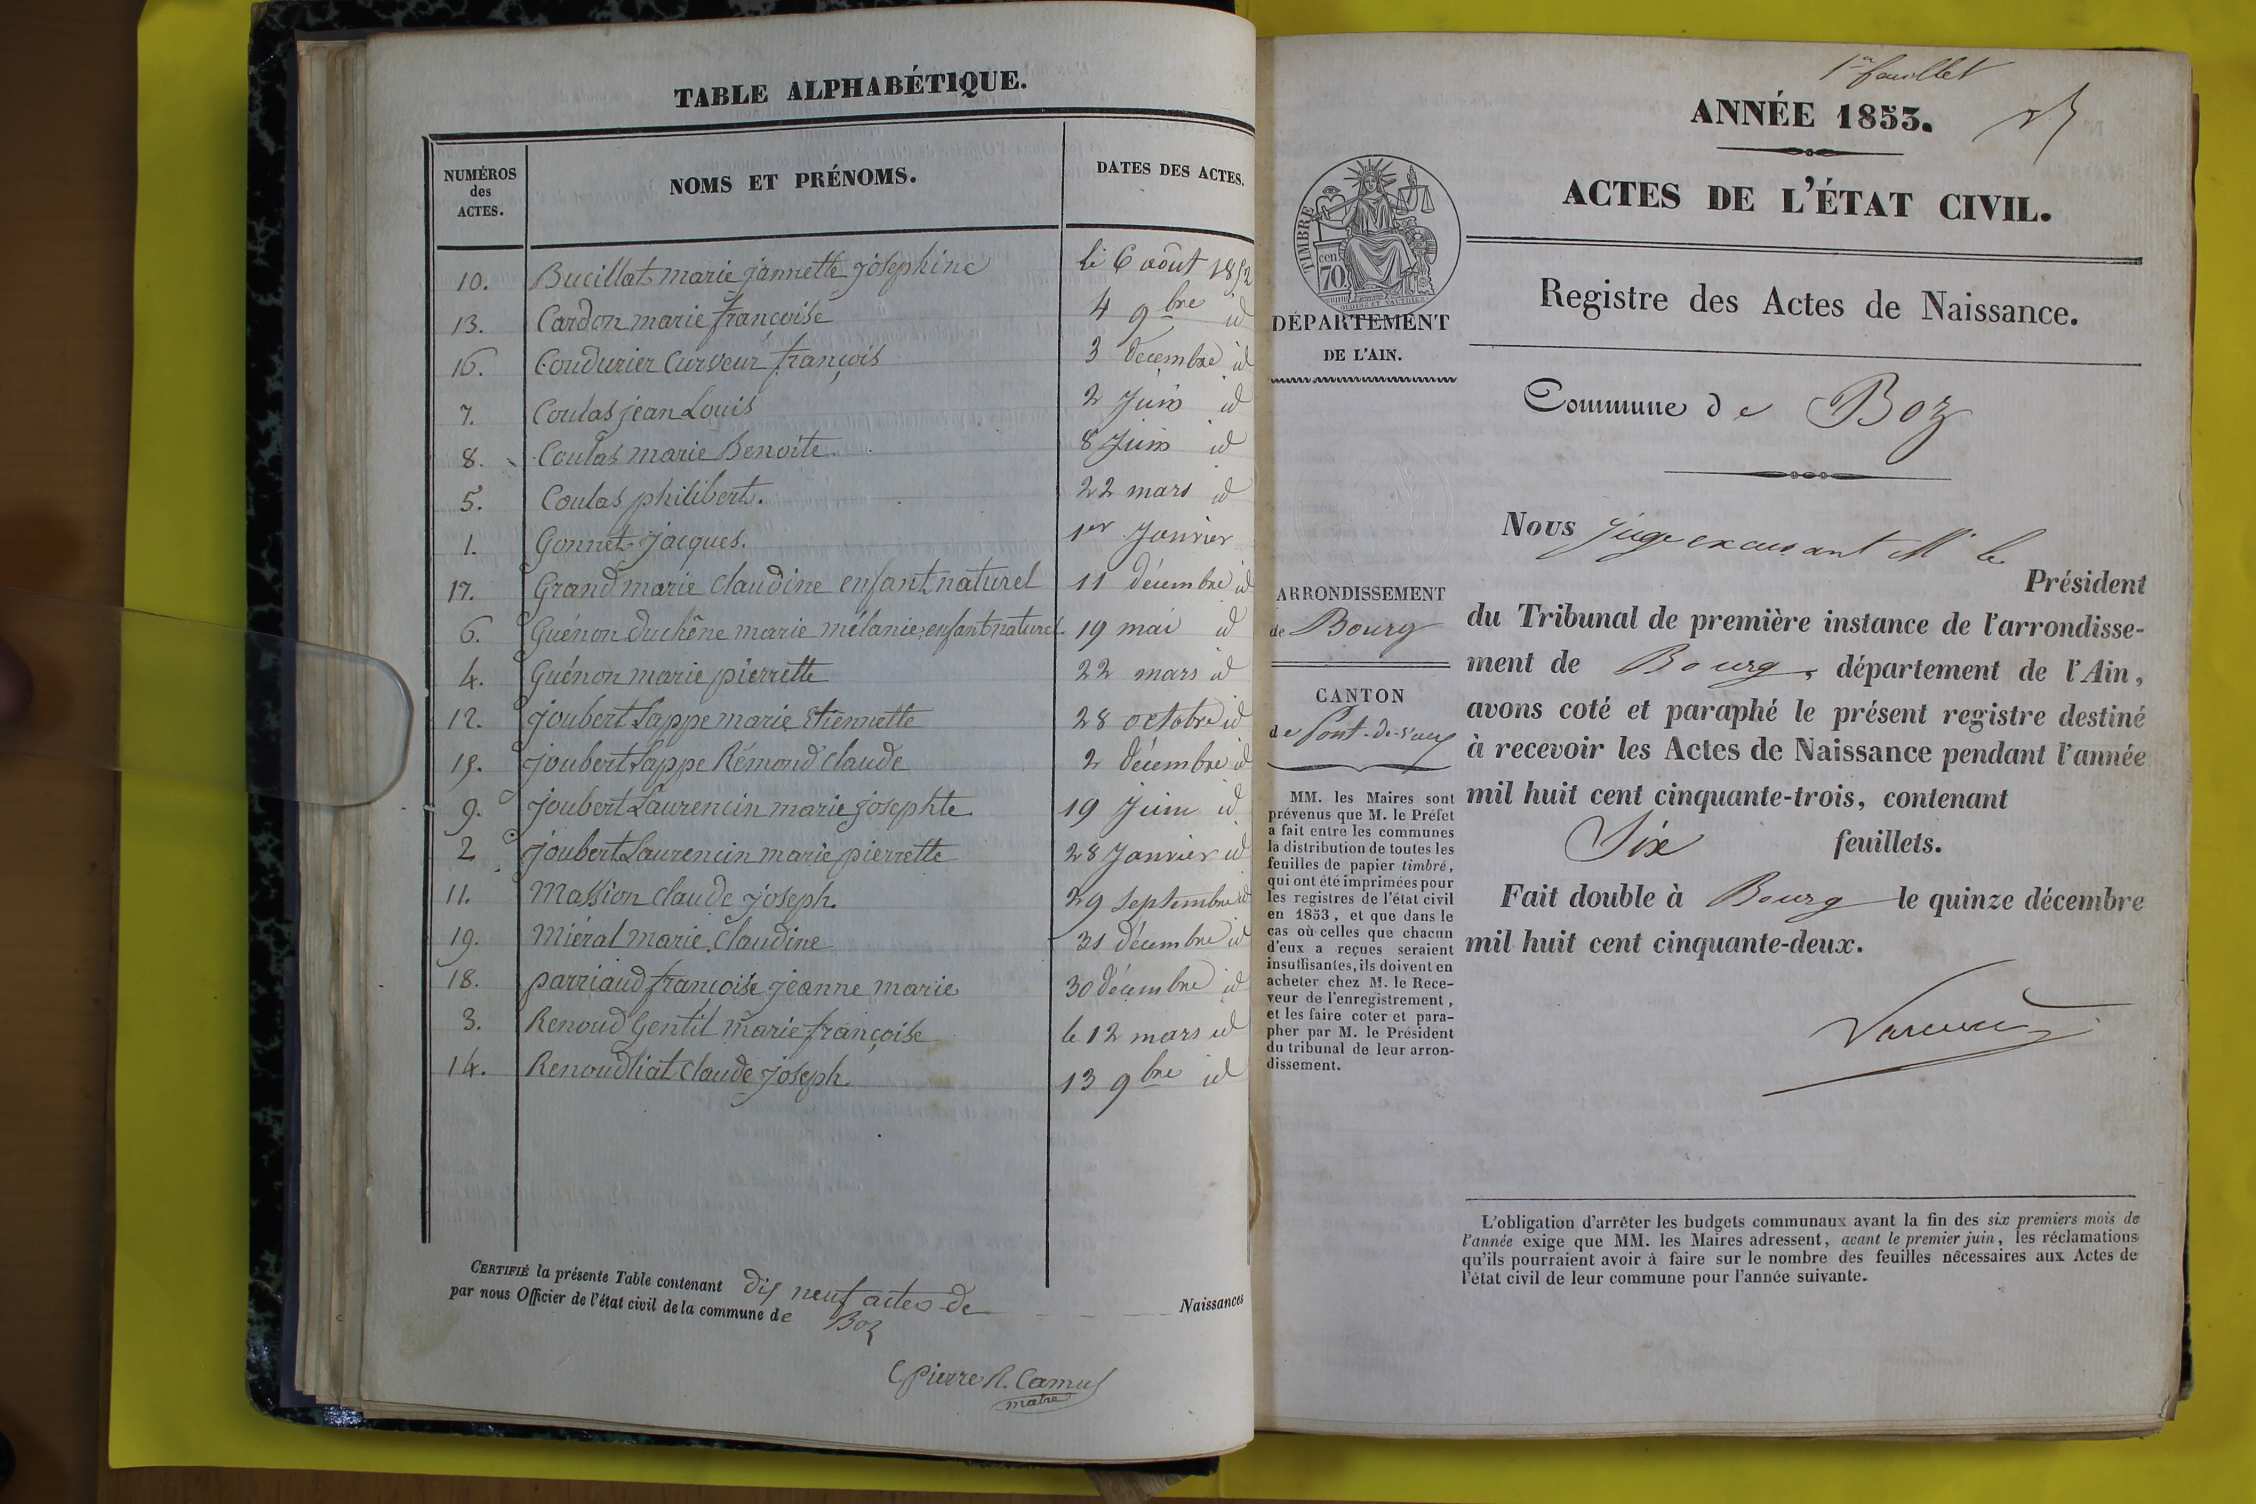 TABLE ALPHABÉTIQUE.
NUMÉROS des ACTES. NOMS ET PRÉNOMS. DATES DES ACTES.
10. Bucillat marie jannette josephine le 6 août 1852
13. Cardon marie françoise 4 9bre id
16. Coudurier Curveur françois 3 décembre id
7. Coulas jean Louis 2 Juin id
8. Coulas marie Benoite. 8 Juin id
5. Coulas philibert. 22 mars id
1. Gonnet jacques. 1er Janvier
17. Grand marie claudine enfant naturel 11 décembre id
6. Guénon duchêne marie mélanie enfant naturel. 19 mai id
4. Guénon marie pierrette 22 mars id
12. joubert Lappe marie Etiennette 28 octobre id
15. joubert Lappe Rémond Claude 2 décembre id
9. joubert Laurencin marie josephte 19 Juin id
2 joubert Laurencin marie pierrette 28 Janvier id
11. Massion claude joseph. 29 septembre id
19. Miéral marie Claudine 31 décembre id
18. parriaud françoise jeanne marie 30 décembre id
3. Renoud Gentil marie françoise le 12 mars id
14. Renoudliat Claude joseph 13 9bre id
CERTIFIÉ la présente Table contenant dix neuf actes de Naissances
par nous Officier de l'état civil de la commune de Boz
Pierre R. Camus
maire
1er feuillet
ANNÉE 1853.
ACTES DE L'ÉTAT CIVIL.
Registre des Actes de Naissance.
TIMBRE
70 cen
DÉPARTEMENT
DE L'AIN.
Commune de Boz
ARRONDISSEMENT
de Bourg
CANTON
de Pont-de-Vaux
MM. les Maires sont
prévenus que M. le Préfet
a fait entre les communes
la distribution de toutes les
feuilles de papier timbré,
qui ont été imprimées pour
les registres de l'état civil
en 1853, et que dans le
cas où celles que chacun
d'eux a reçues seraient
insuffisantes, ils doivent en
acheter chez M. le Rece-
veur de l'enregistrement,
et les faire coter et para-
pher par M. le Président
du tribunal de leur arron-
dissement.
Nous Juge excusant Mr le
Président
du Tribunal de première instance de l'arrondisse-
ment de Bourg, département de l'Ain,
avons coté et paraphé le présent registre destiné
à recevoir les Actes de Naissance pendant l'année
mil huit cent cinquante-trois, contenant
Six feuillets.
Fait double à Bourg le quinze décembre
mil huit cent cinquante-deux.
L'obligation d'arrêter les budgets communaux avant la fin des six premiers mois de
l'année exige que MM. les Maires adressent, avant le premier juin, les réclamations
qu'ils pourraient avoir à faire sur le nombre des feuilles nécessaires aux Actes de
l'état civil de leur commune pour l'année suivante.